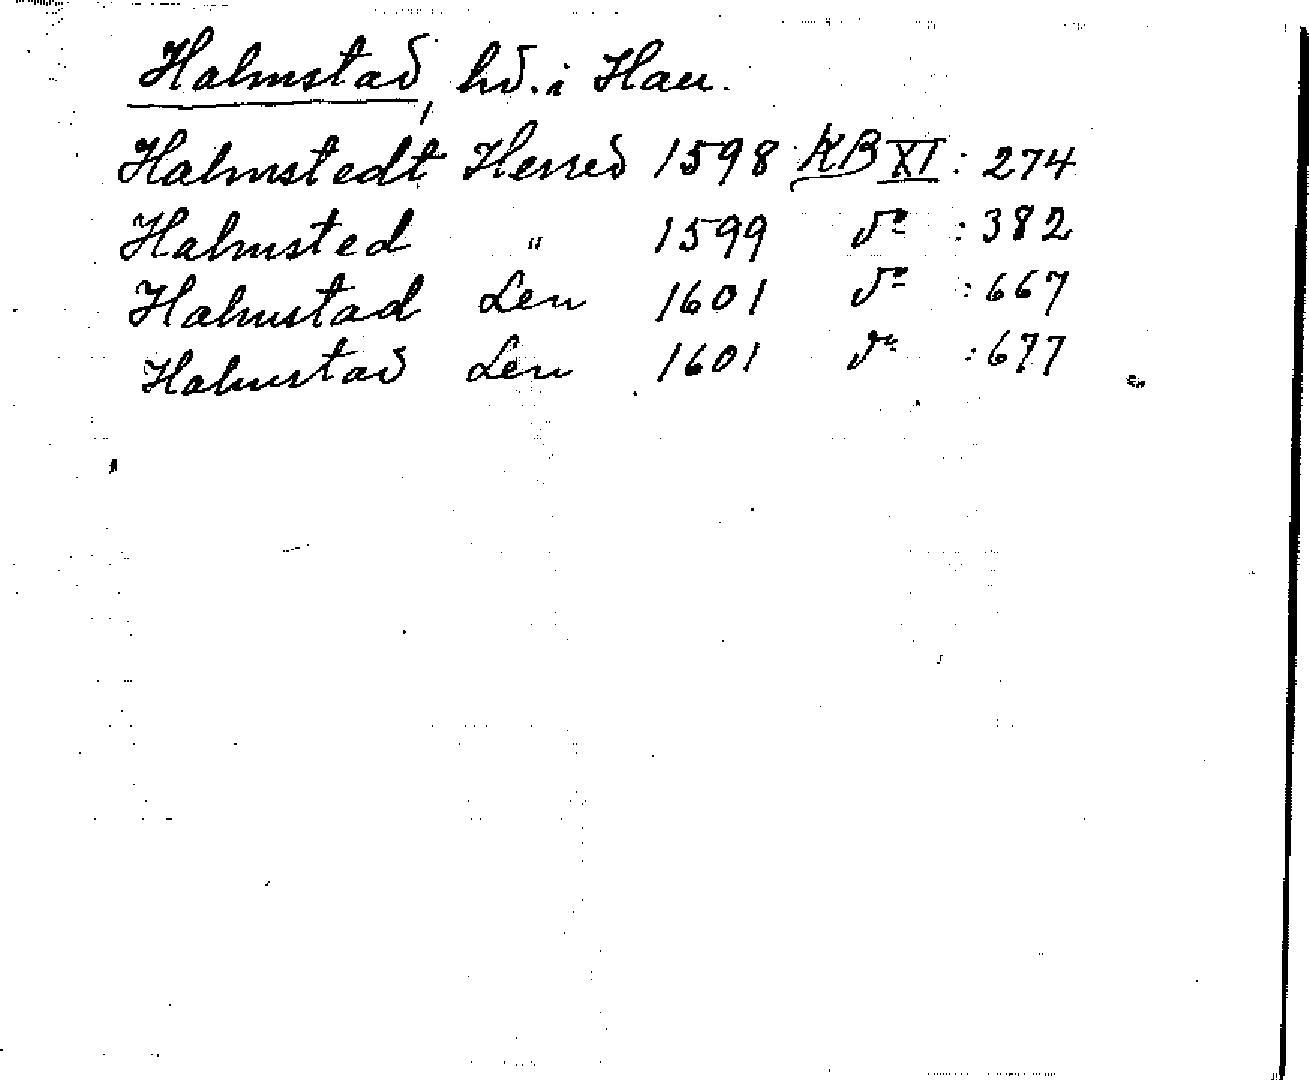 Halmstad, hd. i Hall.
Halmstedt Herred 1598 KB XI : 274
Halmsted " 1599 do : 382
Halmstad Len 1601 do : 667
Halmstad Len 1601 do : 677